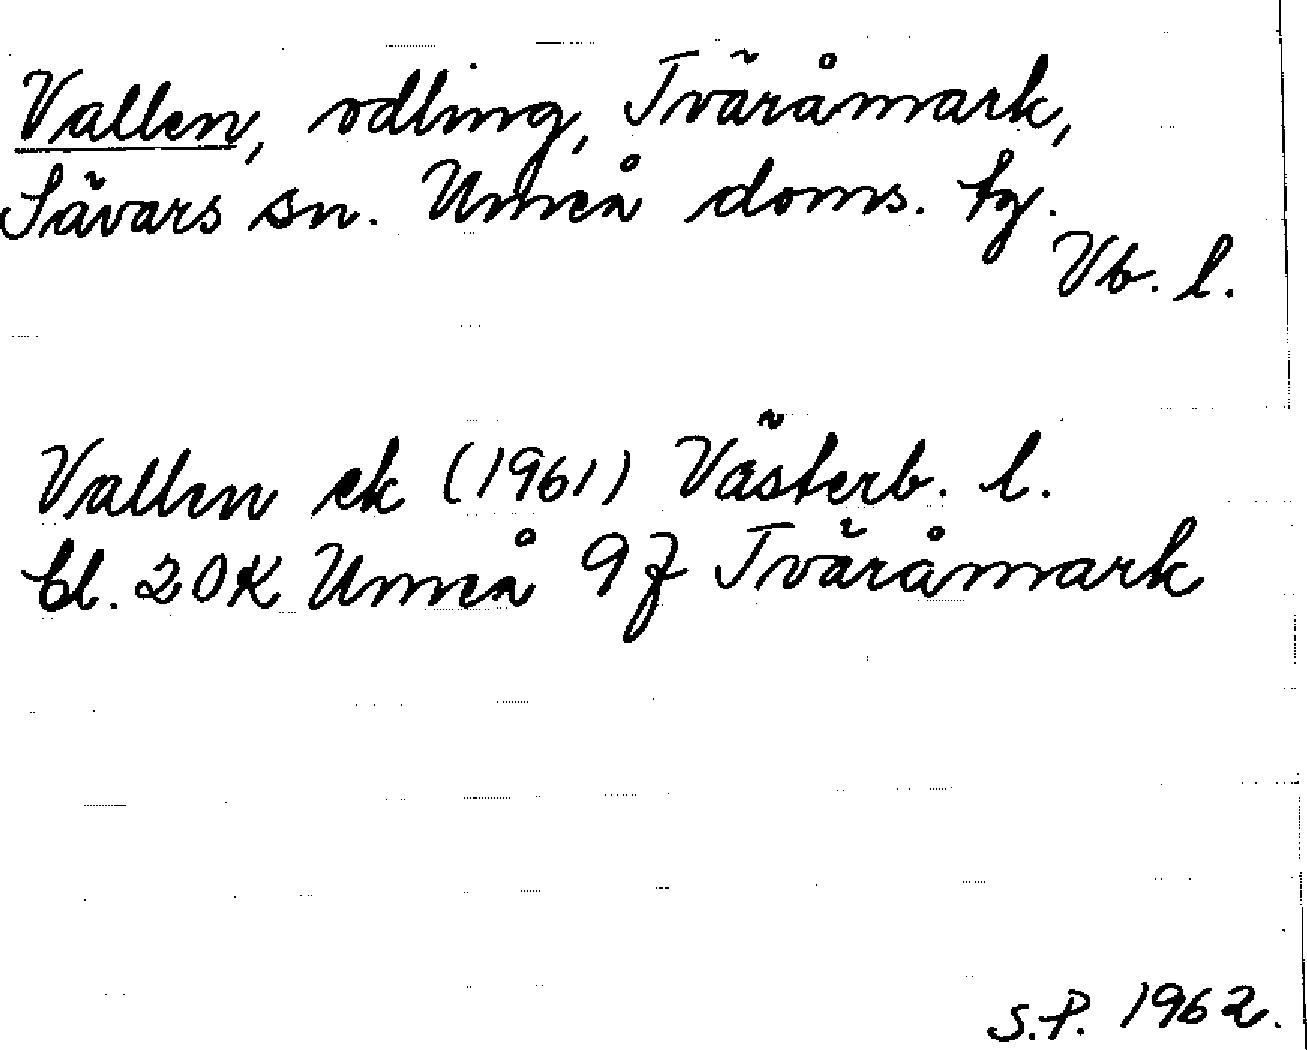 Vallen, odling, Tväråmark,
Sävars sn. Umeå doms. tg.
Vb. l.
Vallen ek (1961) Västerb. l.
bl. 20K Umeå 9f Tväråmark
S.P. 1962.